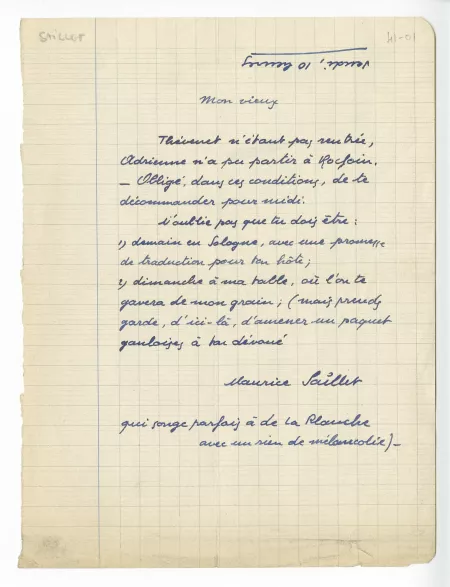 Saillet
41-01
vendredi, 10 January
Mon vieux
Thévenet n'étant pas rentrée,
Adrienne n'a pu partir à Rocfoin.
— Obligé, dans ces conditions, de te
décommander pour midi.
N'oublie pas que tu dois être :
1) demain en Sologne, avec une promesse
de traduction pour ton hôte ;
2) dimanche à ma table, où l'on te
gavera de mon grain ; (mais prends
garde, d'ici-là, d'amener un paquet
gauloises à ton dévoué
Maurice Saillet
qui songe parfois à de La Planche
avec un rien de mélancolie) —